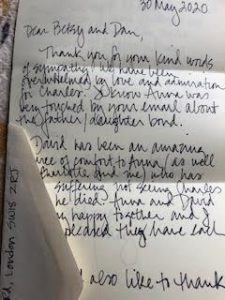 30 May 2020
Dear Betsy and Dan,
Thank you for your kind words
of sympathy. We have been
overwhelmed by love and admiration
for Charles. I know Anna was
very touched by your email about
the father/daughter bond.
David has been an amazing
of comfort to Anna, as well
and me, who has
suffering not seeing Charles
he died. Anna and David
happy together and I
pleased they have each
also like to thank
London SW15 2EJ